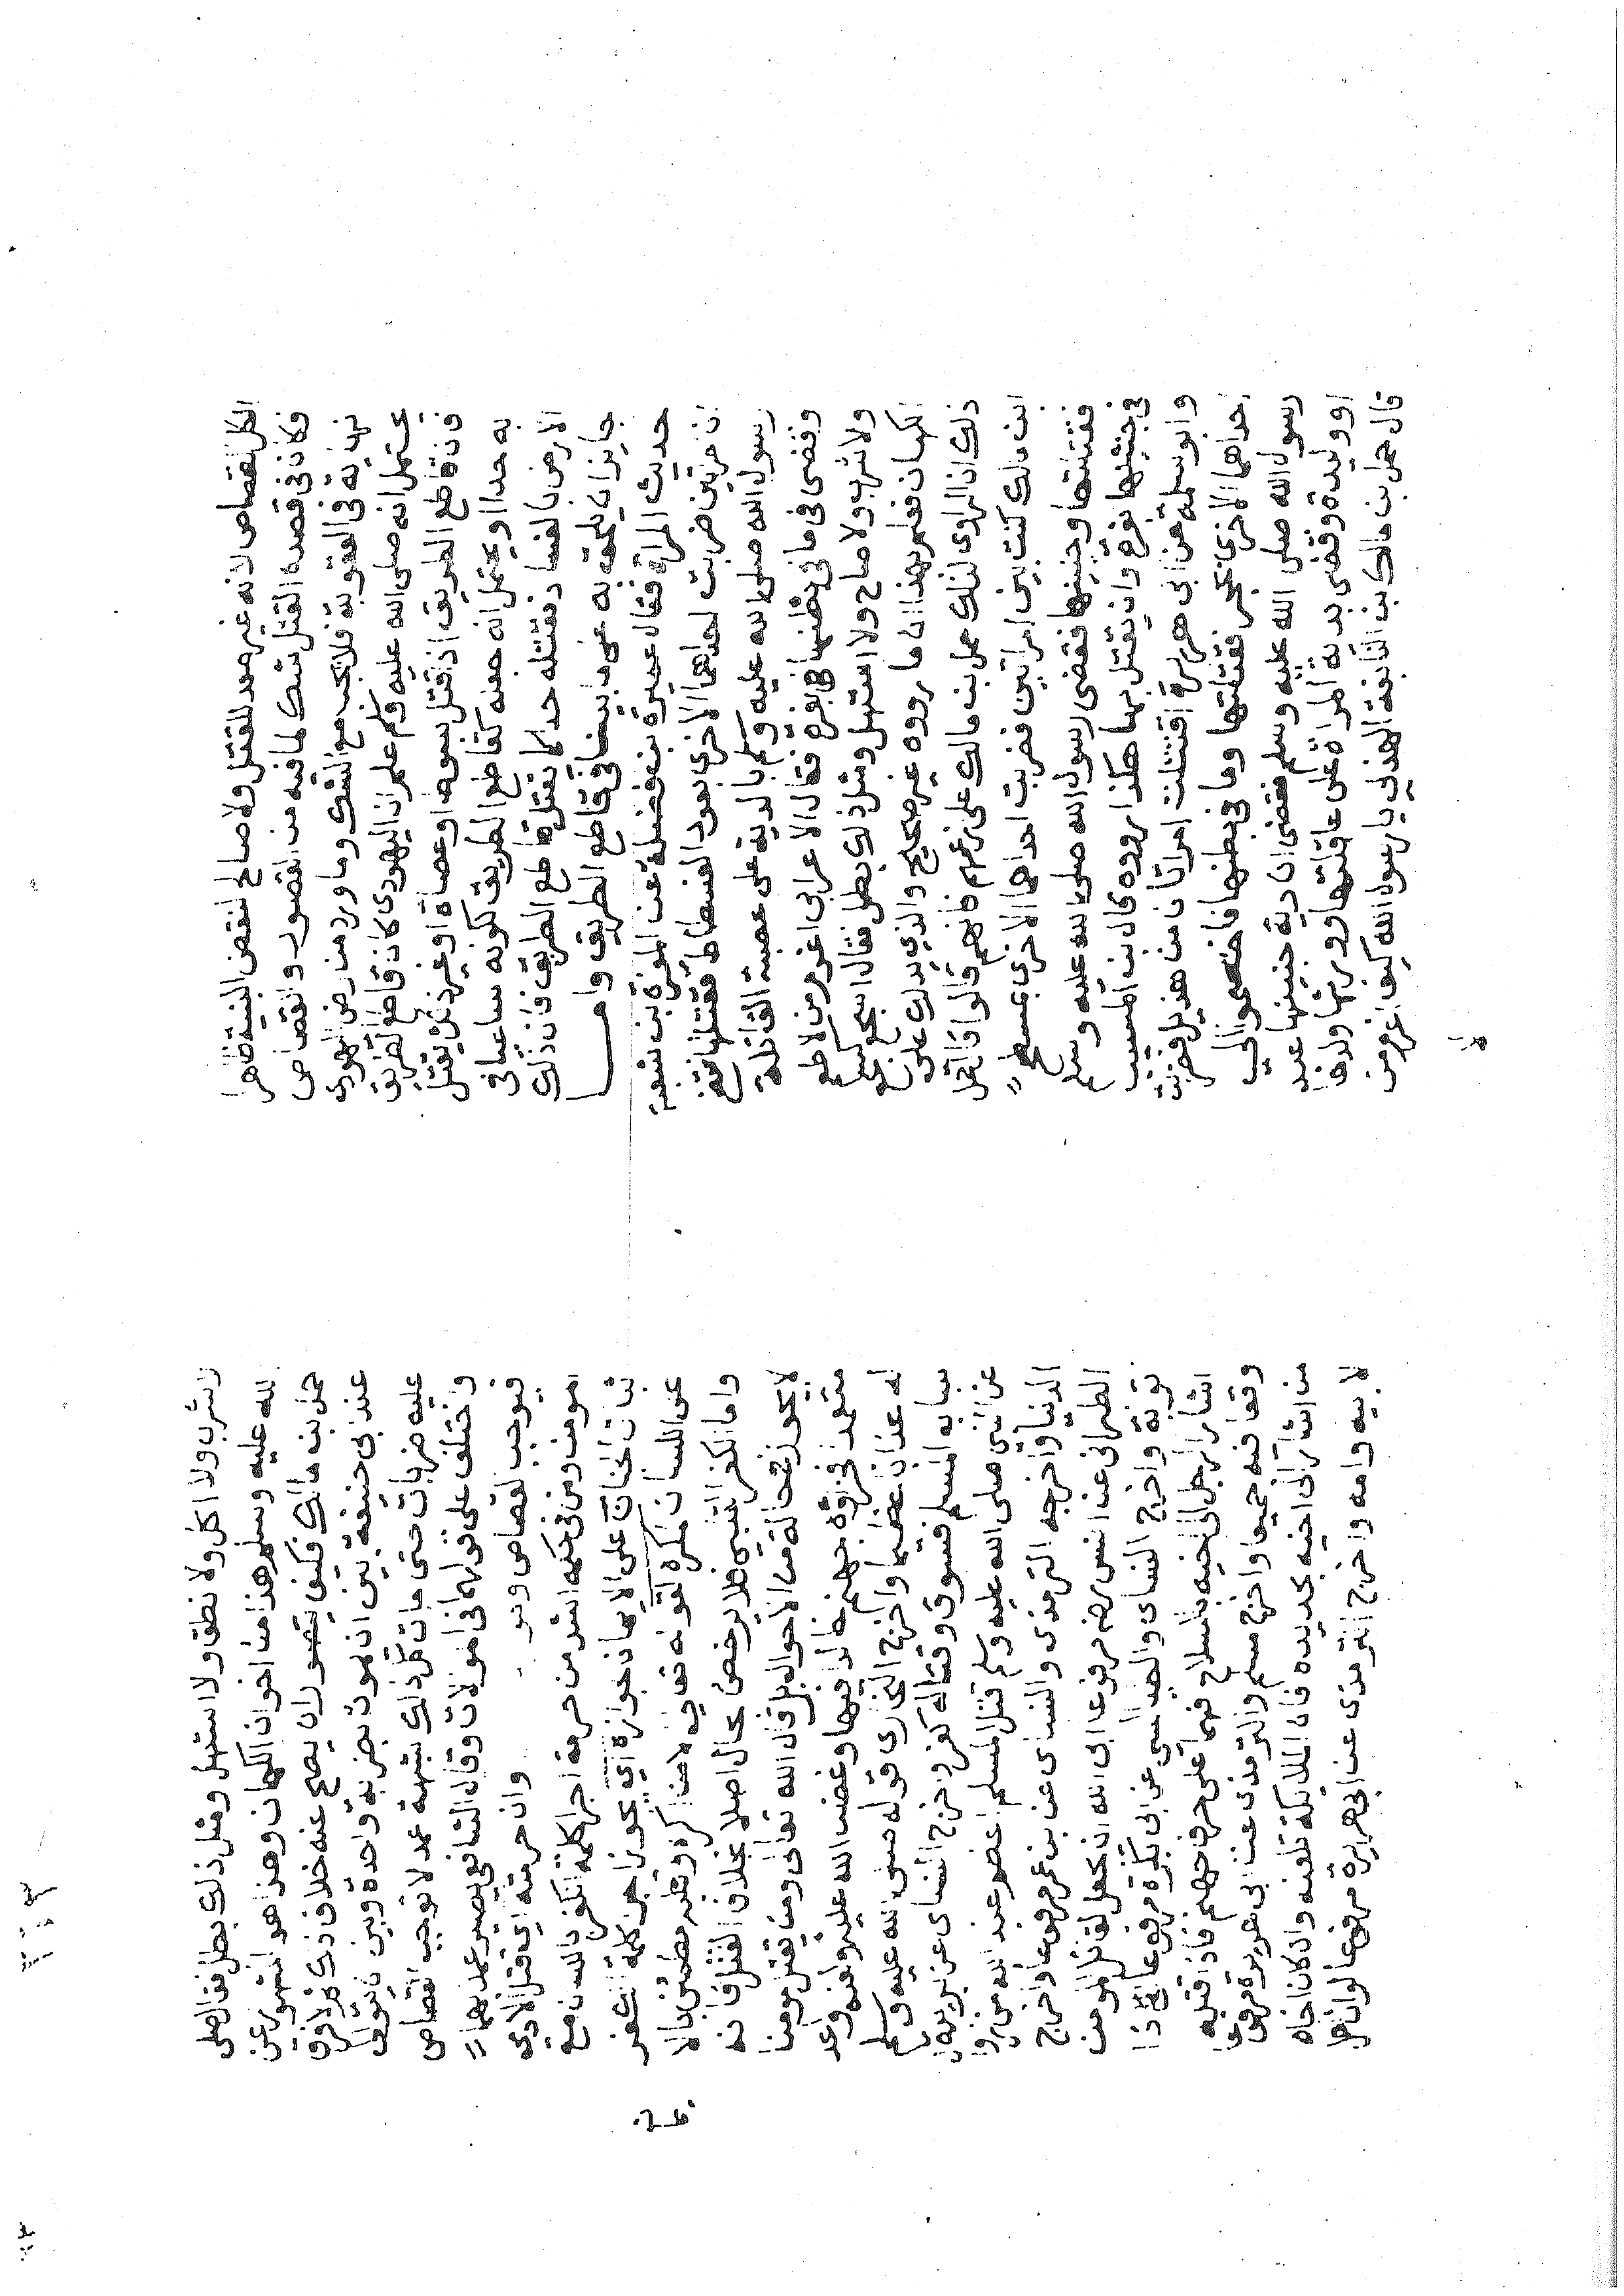 الكل لقصاص لانه غير معد للقتل ولا صالح لنقض البنية ظاهرا
فكان في قصده القتل شك لما فيه من القصور والقصاص
نهاية في العقوبة فلا يجب مع الشك وما ورد من رض اليهودي
يحتمل انه صلى الله عليه وسلم علم ان اليهودي كان قاطع الطريق
فان قاطع الطريق اذا قتل بسوط او عصاة او غير ذلك يقتل
به حدا او يحتمل انه جعله كقاطع الطريق لكونه ساعيا في
الارض بالفساد فقتله حدا كما يقتل قاطع الطريق فان ذلك
جايز ان يلحق به على ما بيناه في قاطع الطريق واما
حديث المراة فقال عبيدة بن نضيلة عن المغيرة بن شعبة
ان ضرتين ضربت احداهما الاخرى بعود الفسطاط فقتلتها فقضى
رسول الله صلى الله عليه وسلم بالدية على عصبة القاتلة
وقضى في ما في بطنها بغرة فقال الاعرابي اغرم من لا طعم
ولا شرب ولا صاح ولا استهل ومثل ذلك بطل فقال اسجع كسجع
الكهان فعلم بهذا ان ما رووه غير صحيح والذي يدل على
ذلك ان الراوي لذلك حمل بن مالك على زعمهم فانهم قالوا قال حمل
ابن مالك كنت بين امراتين فضربت احداهما الاخرى بمسطح
فقتلتها وجنينها فقضى رسول الله صلى الله عليه وسلم
في جنينها بغرة وان تقتل بها هكذا رووه قال بن المسيب
وابو سلمة عن ابي هريرة اقتتلت امراتان من هذيل فضربت
احداهما الاخرى بحجر فقتلتها وما في بطنها فاختصموا الي
رسول الله صلى الله عليه وسلم فقضى ان دية جنينها عبد
او وليدة وقضى بدية المراة على عاقلتها وورثها ولدها
قال حمل بن مالك بن النابغة الهذلي يا رسول الله كيف اغرم من
لا
لا شرب ولا اكل ولا نطق ولا استهل ومثل ذلك بطل فقال صلى
الله عليه وسلم هذا من اخوان الكهان وهذا هو المشهور عن
حمل بن مالك فكيف يتصور ان يصح عنه خلاف ذلك ثم لا فرق
عند ابي حنيفة بين ان يموت بضربة واحدة وبين ان يتوالى
عليه ضربات حتى مات كل ذلك شبهة عمد لا توجب القصاص
واختلف على قولهما في الموالات وقال الشافعي يصير عمدا بهما
فيوجب القصاص وهو وان حرمته اي قتل الادمي
المومن ومن في حكمه اشد من حرمة اجرا كلمة الكفر باللسان مع
ثبات الجنان على الايمان لجوازه اي يجوز اجرا كلمة الكفر
على اللسان لمكره لقوله تعالى الا من اكره وقلبه مطمئن بالا
واما الكفر القلبي فلا يرخص بحال اصلا بخلاف القتل فانه
لا يجوز بحالة من الاحوال بل قال الله تعالى ومن يقتل مومنا
متعمدا فجزاوه جهنم خالدا فيها وغضب الله عليه ولعنه واعد
له عذابا عظيما واخرج البخاري قوله صلى الله عليه وسلم
سباب المسلم فسوق وقتاله كفر واخرج النسائي عن بريدة
عن النبي صلى الله عليه وسلم قتل المسلم اعظم عند الله من زوا
الدنيا واخرجه الترمذي والنساي عن بن عمر مرفوعا واخرج
الطبراني عن انس رضه مرفوعا ابى الله ان يجعل لقاتل المومن
توبة واخرج النساي والطيالسي عن ابي بكرة مرفوعا اذا
اشار الرجل الى اخيه بالسلاح فهما على حرف جهنم فاذا قتله
وقعا فيه جميعا واخرج مسلم والترمذي عن ابي هريرة مرفوعا
من اشار الى اخيه بحديدة فان الملايكة تلعنه وان كان اخاه
لابيه وامه واخرج الترمذي عن ابي هريرة مرفوعا لو ان اهل